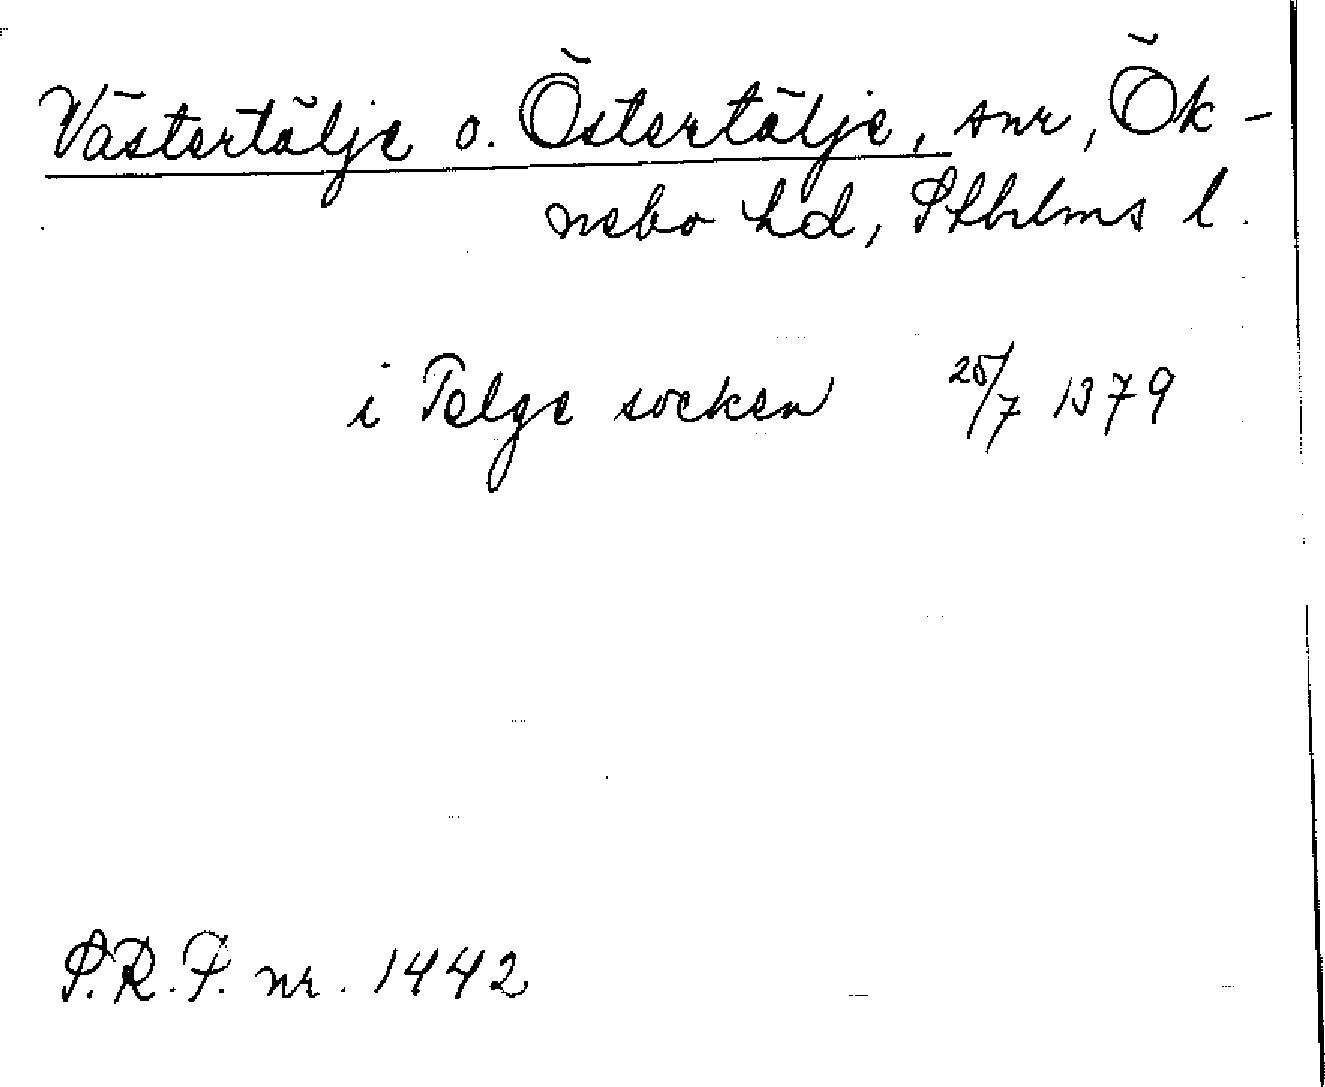 Västertälje o. Östertälje, snr, Ök-
nebo hd, Sthlms l.
i Telge socken 25/7 1379
S.R.P. nr. 1442